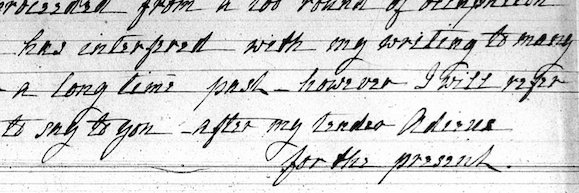 proceeded from a too round of occupation
has interfered with my writing to many
a long time past - however I will refer
to say to you - after my tender Adieus
for the present.